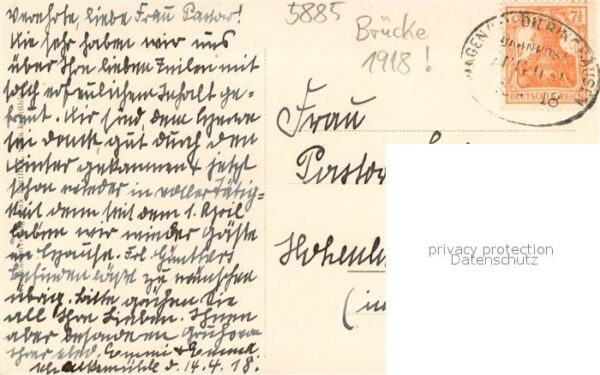 Verehrte, liebe Frau Pastor!
Wie sehr haben wir uns
über Ihre lieben Zeilen mit
solch erfreulichem Inhalt ge-
freut. Wir sind dem Herrn
sei dank gut durch den
Winter gekommen & jetzt
schon wieder in voller Tätig-
keit denn seit dem 1. April
haben wir wieder Gäste
im Hause. Frl. Günthers
Befinden läßt zu wünschen
übrig. Bitte grüßen Sie
all Ihre Lieben. Ihnen
aber besonderen Gruß von
Ihrer
d. 14.4.18.
5885
Brücke
1918!
Frau
Pastor
Hohenl
(in
BAHNPOST
18
7½
DEUTSCHES REICH
privacy protection
Datenschutz